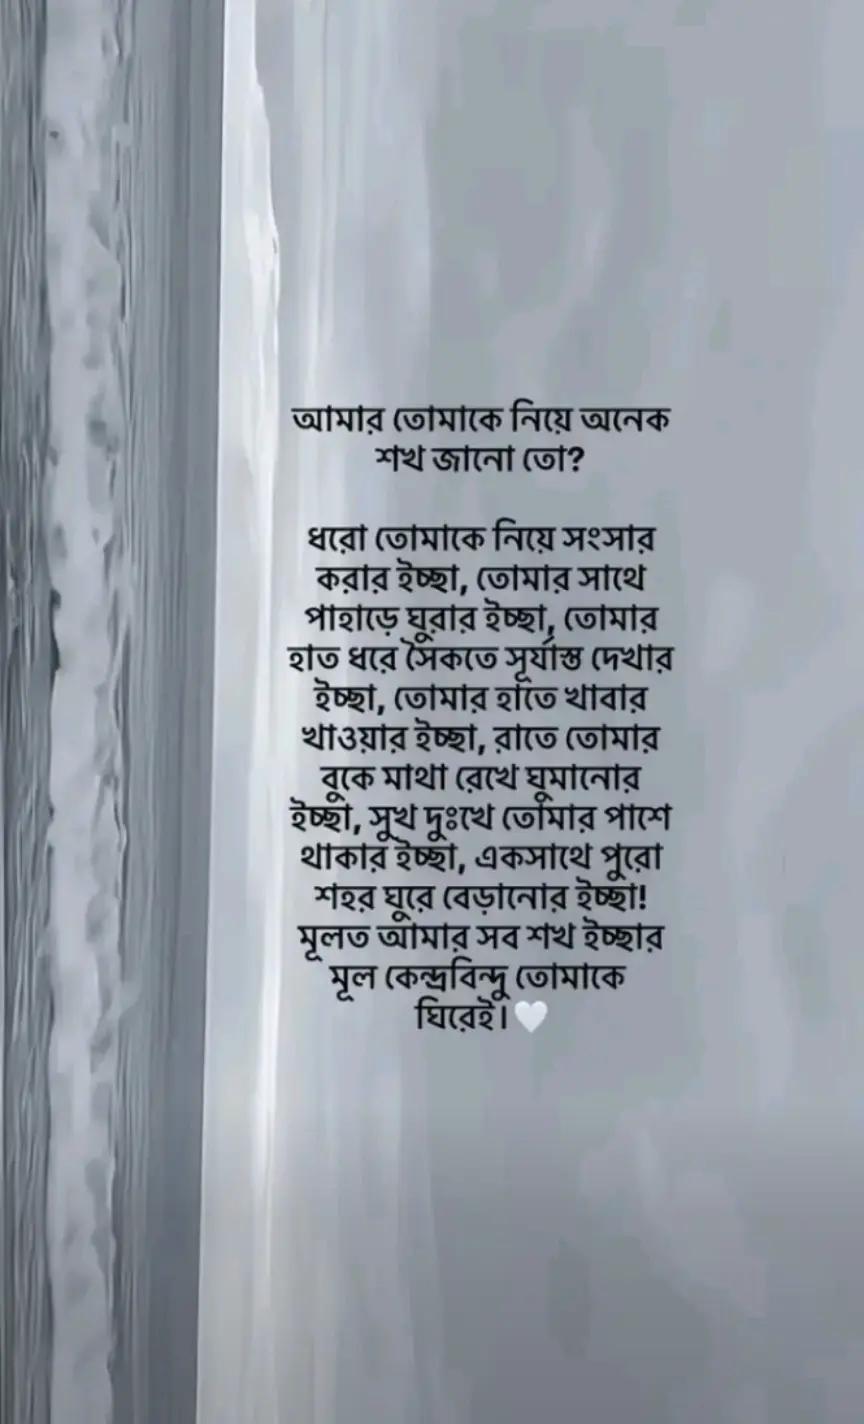 আমার তোমাকে নিয়ে অনেক
শখ জানো তো?
ধরো তোমাকে নিয়ে সংসার
করার ইচ্ছা, তোমার সাথে
পাহাড়ে ঘুরার ইচ্ছা, তোমার
হাত ধরে সৈকতে সূর্যাস্ত দেখার
ইচ্ছা, তোমার হাতে খাবার
খাওয়ার ইচ্ছা, রাতে তোমার
বুকে মাথা রেখে ঘুমানোর
ইচ্ছা, সুখ দুঃখে তোমার পাশে
থাকার ইচ্ছা, একসাথে পুরো
শহর ঘুরে বেড়ানোর ইচ্ছা!
মূলত আমার সব শখ ইচ্ছার
মূল কেন্দ্রবিন্দু তোমাকে
ঘিরেই।🤍